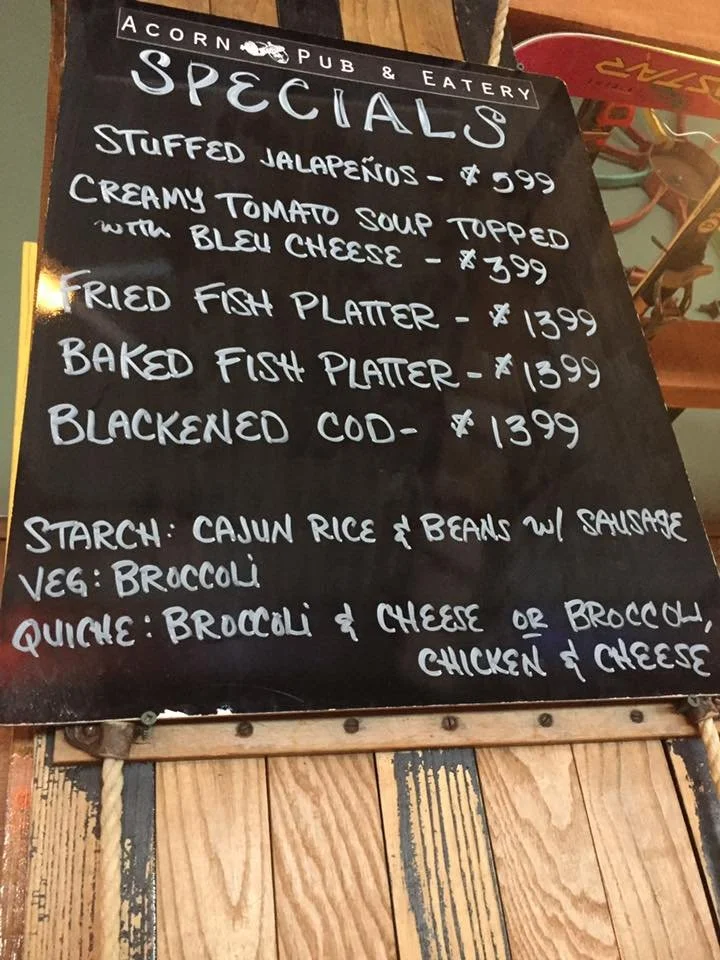 ACORN PUB & EATERY
SPECIALS
STUFFED JALAPEÑOS - $599
CREAMY TOMATO SOUP TOPPED
with BLEU CHEESE - $399
FRIED FISH PLATTER - $1399
BAKED FISH PLATTER - $1399
BLACKENED COD - $1399
STARCH: CAJUN RICE & BEANS w/ SAUSAGE
VEG: BROCCOLI
QUICHE: BROCCOLI & CHEESE OR BROCCOLI,
CHICKEN & CHEESE